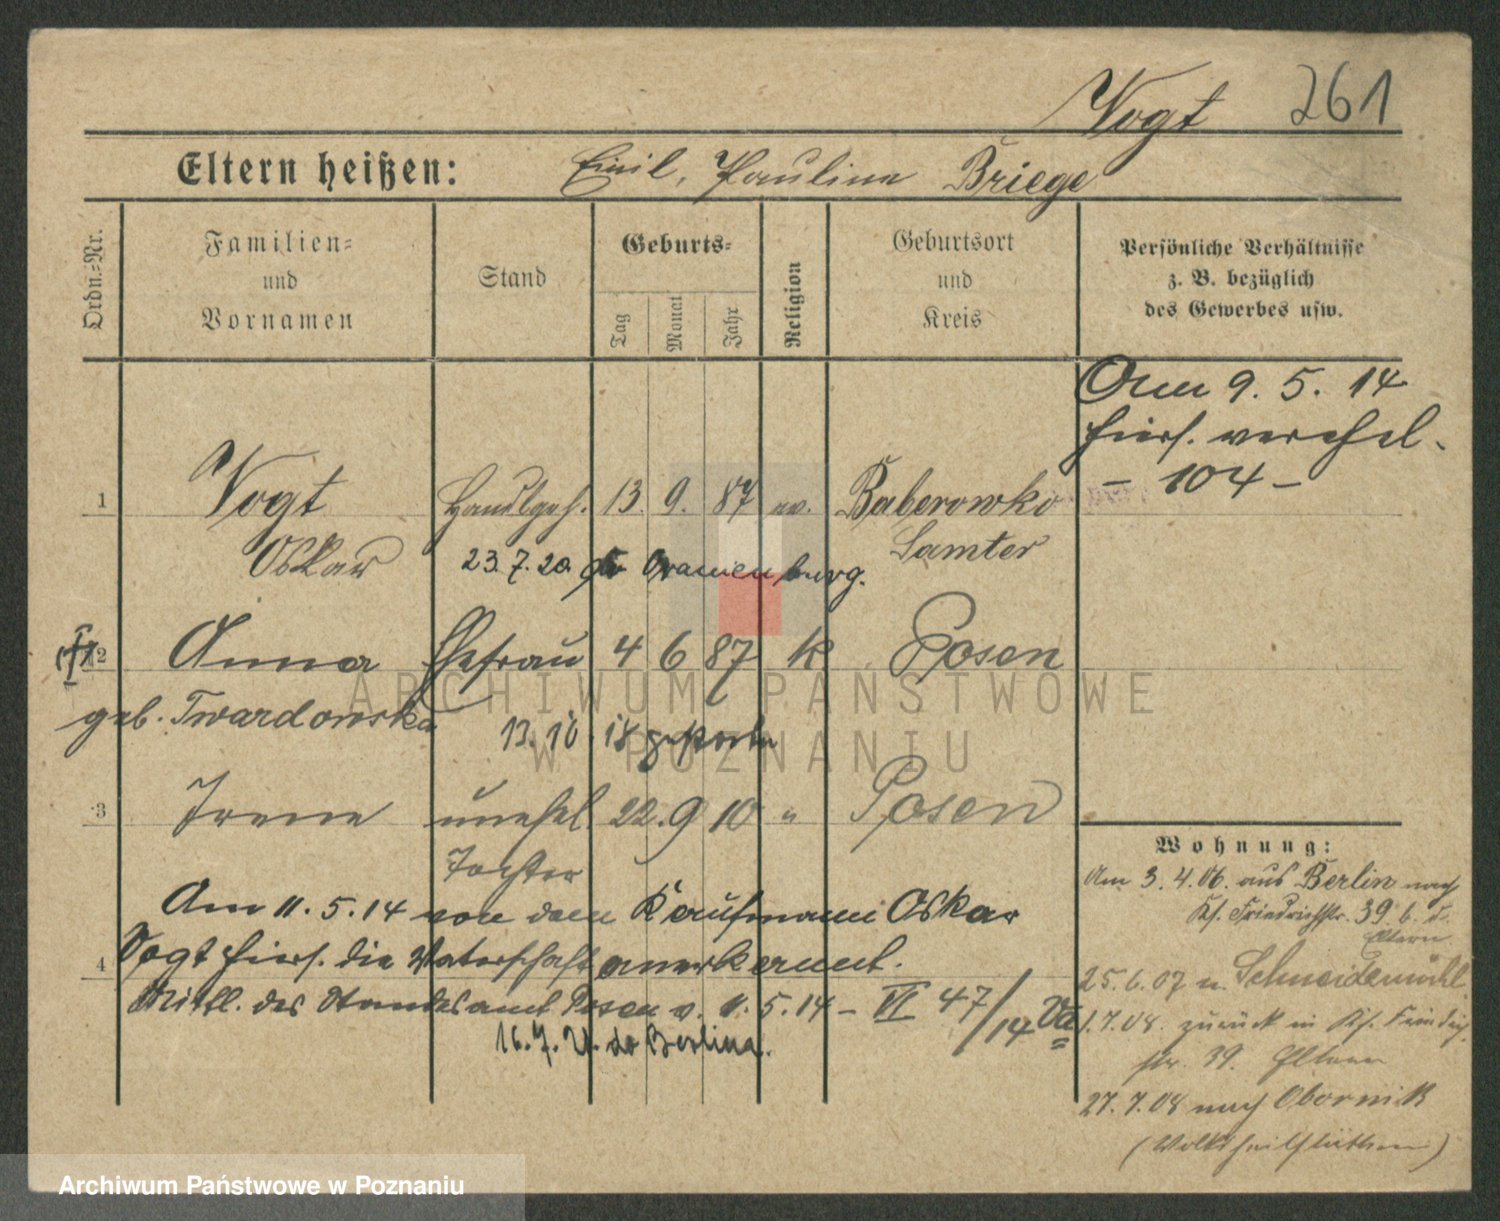 Vogt 261
Eltern heißen: Emil, Pauline Briege
Ordn.-Nr.
Familien-
und
Vornamen
Stand
Geburts-
Tag
Monat
Jahr
Religion
Geburtsort
und
Kreis
Persönliche Verhältnisse
z. B. bezüglich
des Gewerbes usw.
Am 9. 5. 14
hiers. verehel.
– 104 –
1 Vogt Handlgeh. 13. 9. 87 ev. Baberowko
Oskar Samter
23. 7. 20 do Oranienburg.
2 Anna Ehefrau 4 6 87 K Posen
geb. Twardowska
13. 10. 18 gestorben
3 Irene unehel. 22. 9 10 " Posen
Tochter
Am 11. 5. 14 von dem Kaufmann Oskar
4 Vogt hiers. die Vaterschaft anerkannt.
Mittl. des Standesamt Posen v. 11. 5. 14 – VI 47/14 Va
16. 7. 21. do Berlina.
Wohnung:
Am 3. 4. 06. aus Berlin nach
Ks. Friedrichstr. 39 b. d.
Eltern
25. 6. 07 n. Schneidemühl
1. 7. 08. zurück in Ks. Friedrich
str. 39. Eltern
27. 7. 08 nach Obornik
(Volksheilstätten)
ARCHIWUM PAŃSTWOWE
W POZNANIU
Archiwum Państwowe w Poznaniu